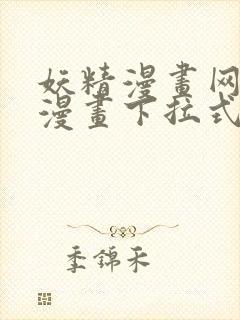 妖精漫畫网
漫畫下拉式
季錦禾